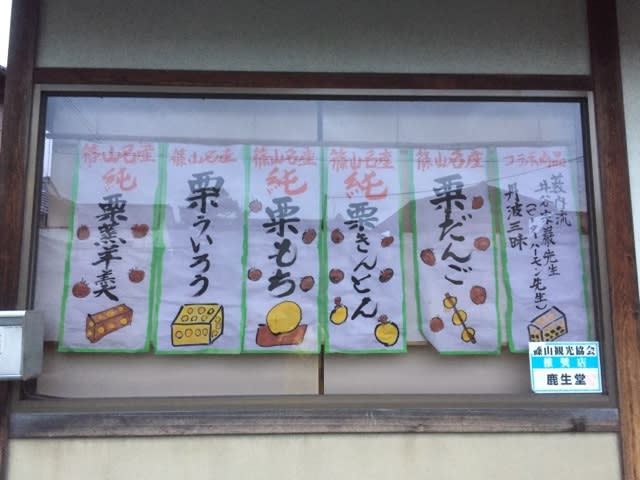 篠山名産
純
栗蒸羊羹
篠山名産
栗ういろう
篠山名産
純
栗もち
篠山名産
純
栗きんとん
篠山名産
栗だんご
コラボ商品
薮内流
井谷宗巌先生
(ピーターハーモン先生)
丹波三昧
篠山観光協会
推奨店
鹿生堂